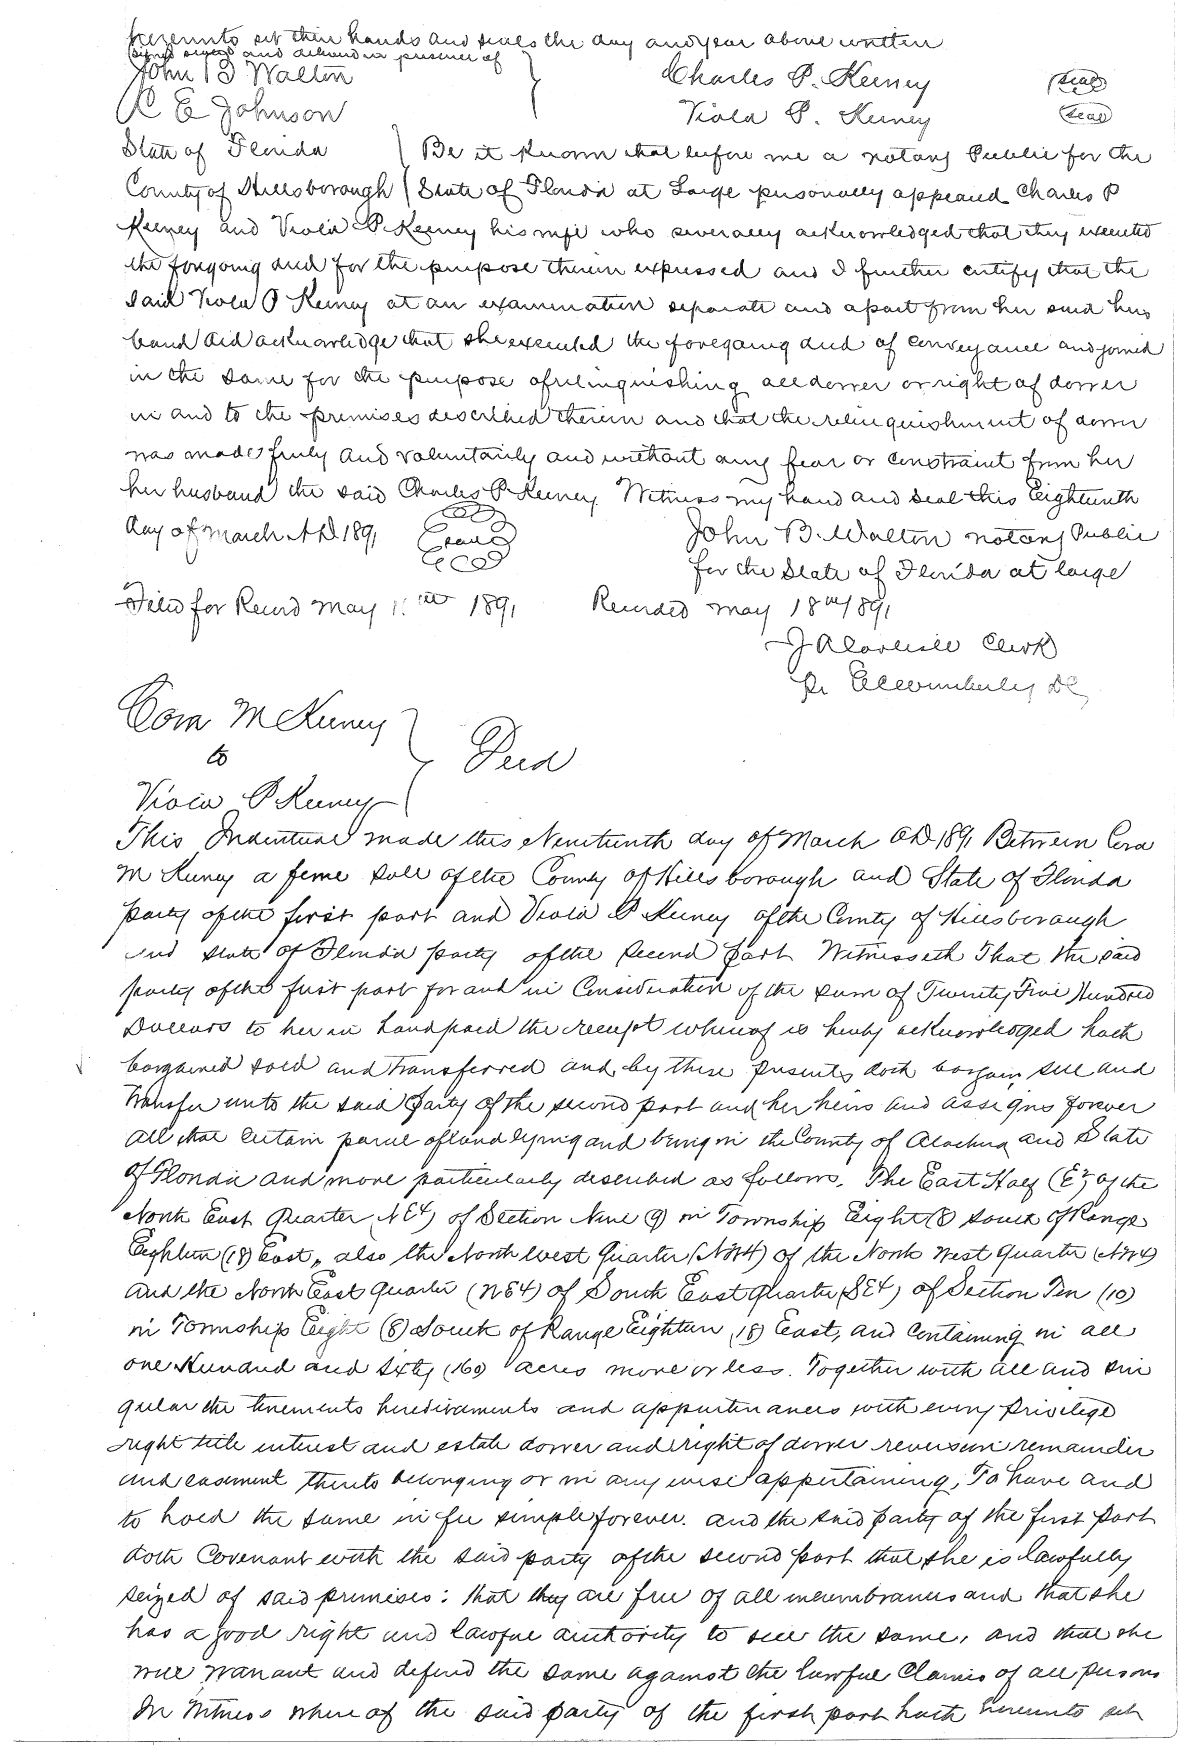 hereunto set their hands and seals the day and year above written
Signed sealed and delivered in presence of
John B Walton } Charles P. Keeney (seal)
R E Johnson Viola P. Keeney (seal)
State of Florida } Be it Known that before me a notary Public for the
County of Hillsborough } State of Florida at Large personally appeared Charles P
Keeney and Viola P Keeney his wife who severally acknowledged that they executed
the forgoing deed for the purpose therein expressed and I further certify that the
said Viola P Keeney at an examination separate and apart from her said hus
band did acknowledge that she executed the foregoing deed of conveyance and joined
in the same for the purpose of relinquishing all dower or right of dower
in and to the premises described therein and that the relinquishment of dower
was made freely and voluntarily and without any fear or constraint from her
her husband the said Charles P Keeney Witness my hand and seal this Eighteenth
day of March A D 1891 (seal) John B. Walton notary Public
for the State of Florida at large
Filed for Record May 1891 Recorded May 18th 1891
J A Carlisle Clerk
Pr DC
Cora M Keeney }
to } Deed
Viola P Keeney }
This Indenture made this Nineteenth day of March AD 1891 Between Cora
M Keeney a feme sole of the County of Hillsborough and State of Florida
party of the first part and Viola P Keeney of the County of Hillsborough
and State of Florida party of the second part Witnesseth That the said
party of the first part for and in Consideration of the sum of Twenty Five Hundred
Dollars to her in hand paid the receipt whereof is hereby acknowledged hath
bargained sold and transferred and by these presents doth bargain sell and
Transfer unto the said party of the second part and her heirs and assigns forever
all that certain parcel of land lying and being in the County of Alachua and State
of Florida and more particularly described as follows, The East Half (E2) of the
North East Quarter (NE4) of Section Nine (9) in Township Eight (8) South of Range
Eighteen (18) East, also the North West Quarter (NW4) of the North West Quarter (NW4)
and the North East Quarter (NE4) of South East Quarter (SE4) of Section Ten (10)
in Township Eight (8) South of Range Eighteen (18) East, and containing in all
one Hundred and sixty (160) acres more or less. Together with all and sin
gular the tenements hereditaments and appurtenances with every privilege
right title interest and estate dower and right of dower reversion remainder
and easement thereto belonging or in any wise appertaining, To have and
to hold the same in fee simple forever. and the said party of the first part
doth Covenant with the said party of the second part that she is lawfully
seized of said premises: that they are free of all incumbrances and that she
has a good right and lawful authority to sell the same, and that she
will warrant and defend the same against the lawful Claims of all persons
In Witness where of the said party of the first part hath hereunto set